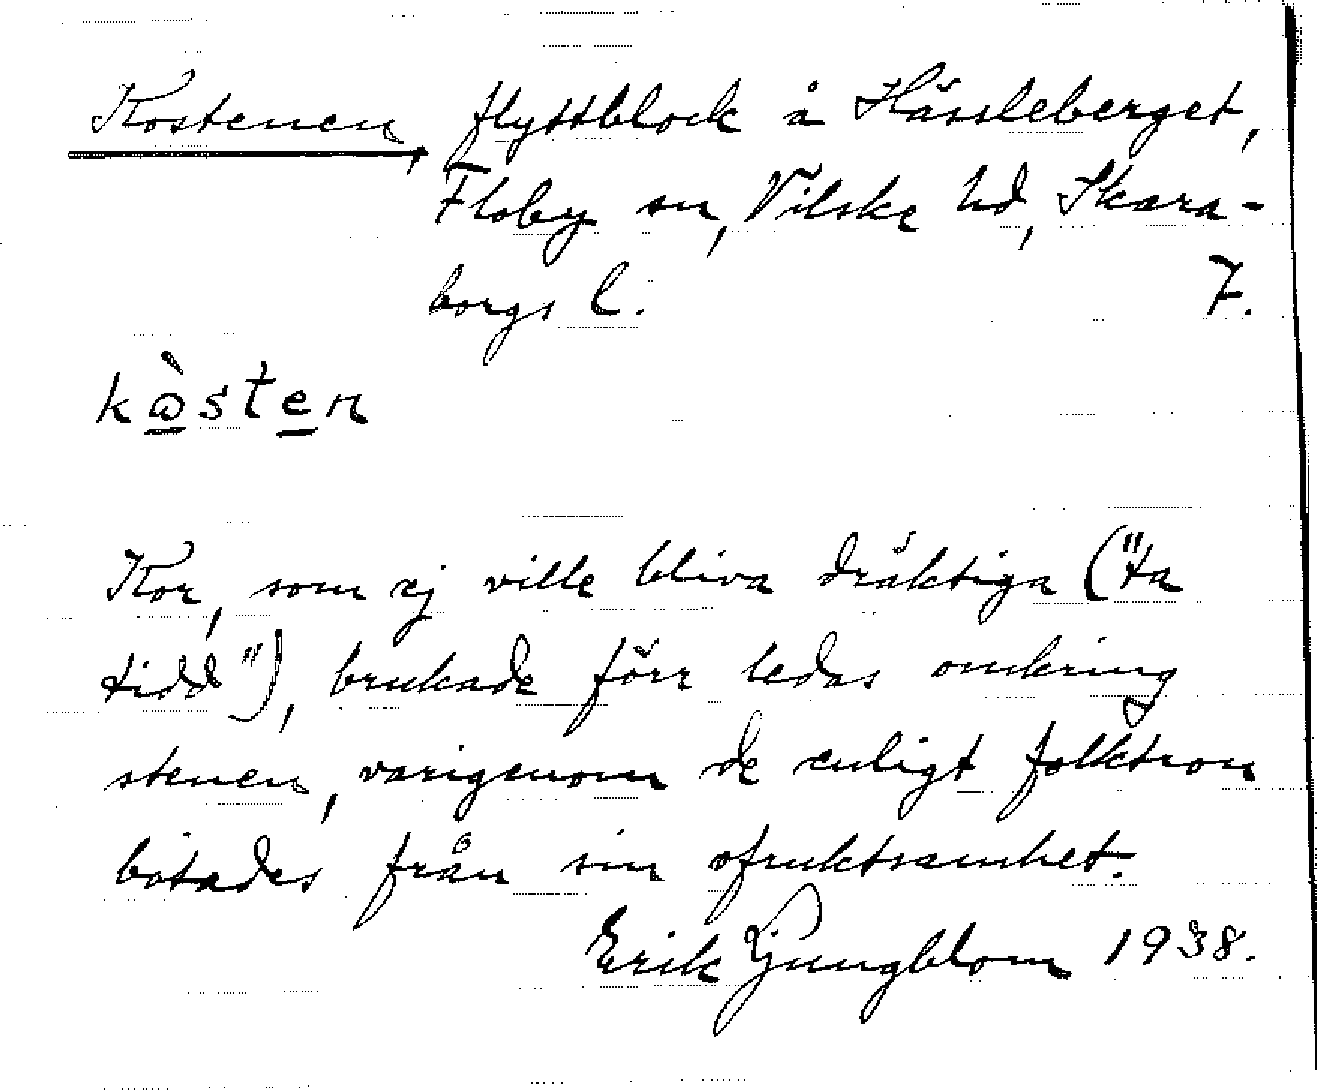 Kostenen, flyttblock å Hässleberget,
Floby sn, Vilske hd, Skara-
borgs l. 7.
kòsten
Kor, som ej ville bliva dräktiga ("ta
tidd"), brukade förr ledas omkring
stenen, varigenom de enligt folktron
botades från sin ofruktsamhet.
Erik Ljungblom 1938.